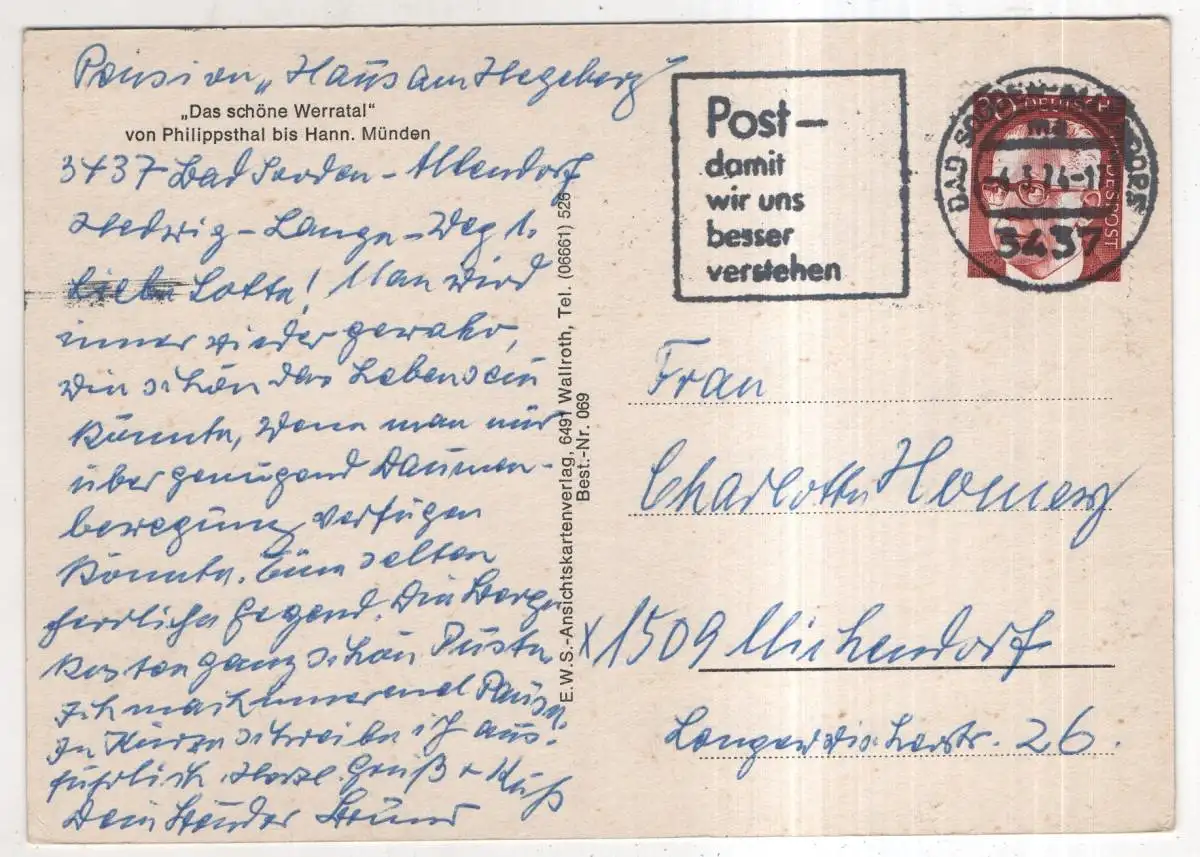 Pension „Haus am Hegeberg"
„Das schöne Werratal"
von Philippsthal bis Hann. Münden
3437 Bad Sooden-Allendorf
Hedwig-Lange-Weg 1.
Liebe Lotte! Man wird
immer wieder gewahr,
wie schön das Leben sein
könnte, wenn man nur
über genügend Daumen-
bewegung verfügen
könnte. Eine selten
herrliche Gegend. Die Berge
kosten ganz schön Puste.
Ich mach immer mal Pause.
In Kürze schreibe ich aus-
führlich. Herzl. Gruß + Kuß
Dein Bruder
E.W.S.-Ansichtskartenverlag, 6491 Wallroth, Tel. (06661) 526
Best.-Nr. 069
Post-
damit
wir uns
besser
verstehen
DEUTSCHE BUNDESPOST
BAD SOODEN-ALLENDORF
3437
Frau
Charlotte
X1509 Michendorf
Langerwischerstr. 26.